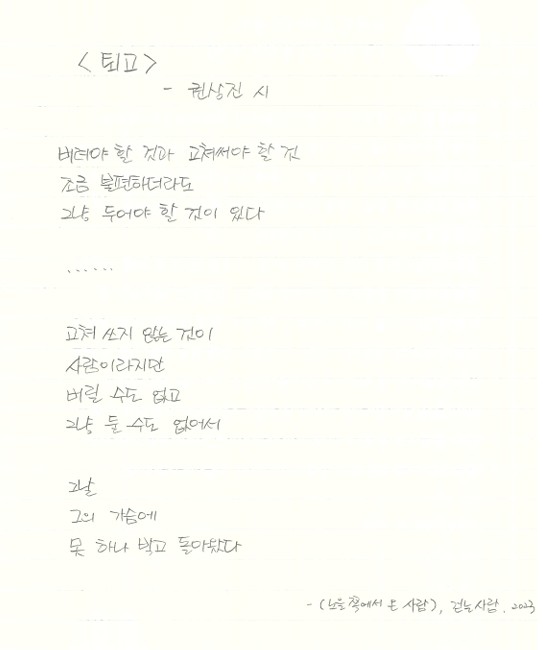 <퇴고>
- 권상진 시
버려야 할 것과 고쳐써야 할 것
조금 불편하더라도
그냥 두어야 할 것이 있다
......
고쳐 쓰지 않는 것이
사람이라지만
버릴 수도 없고
그냥 둘 수도 없어서
그날
그의 가슴에
못 하나 박고 돌아왔다
- (노을 쪽에서 온 사람), 걷는사람, 2023